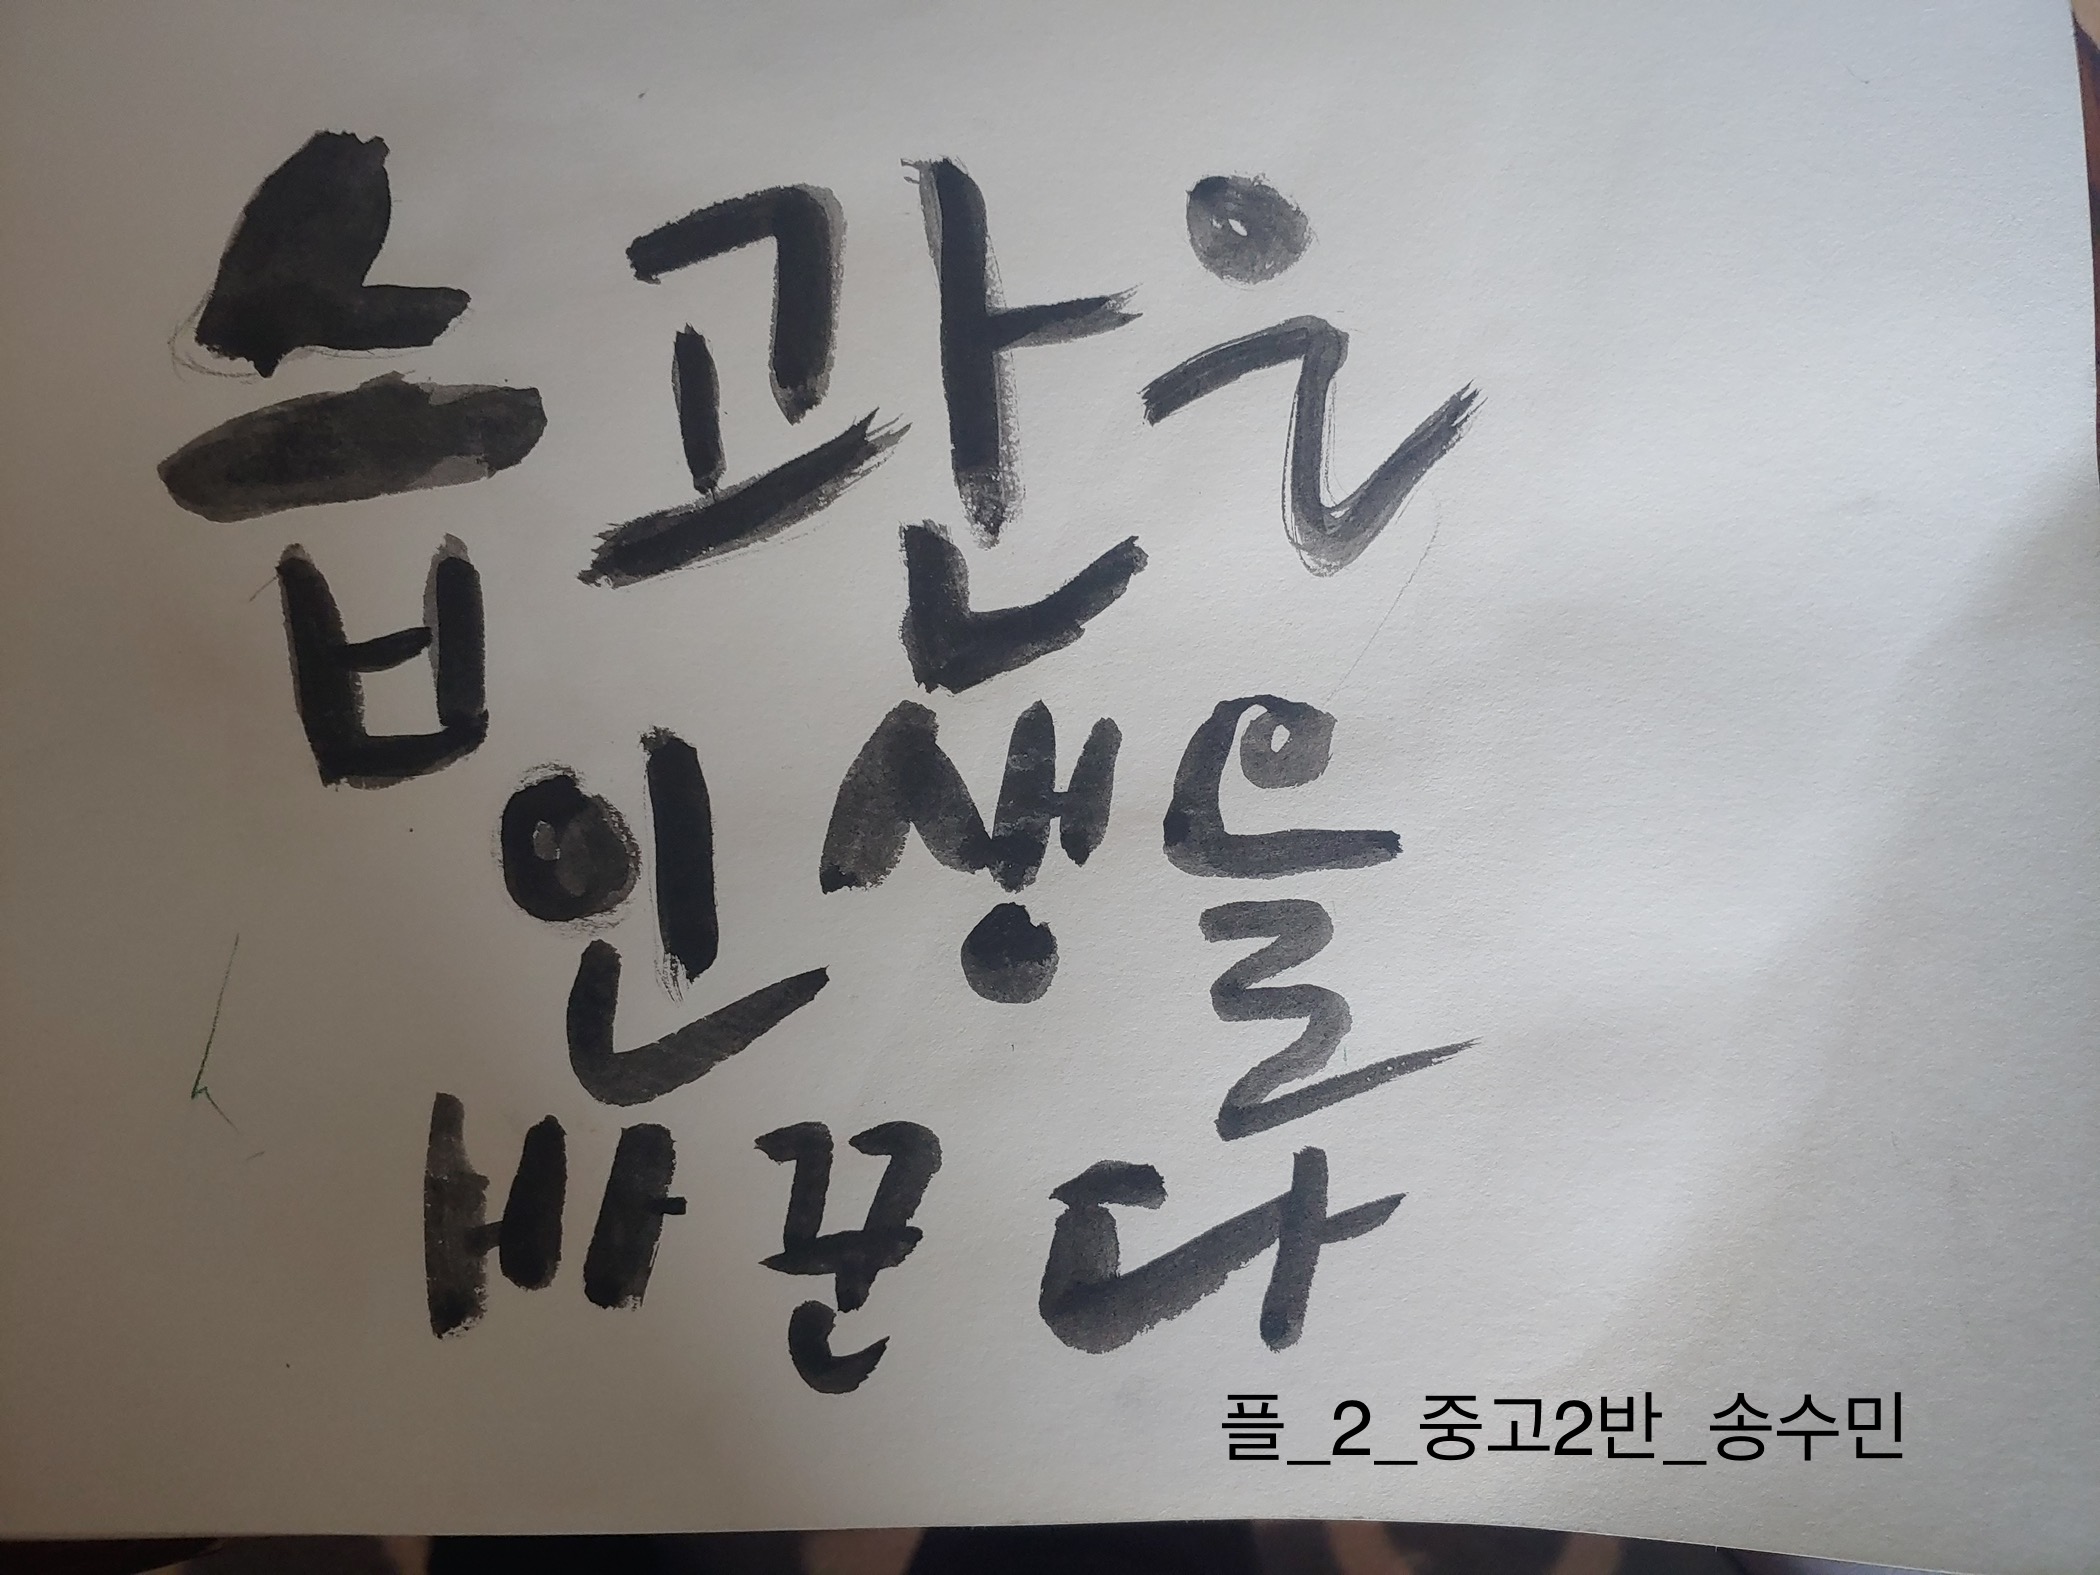 습관은
인생을
바꾼다
플_2_중고2반_송수민